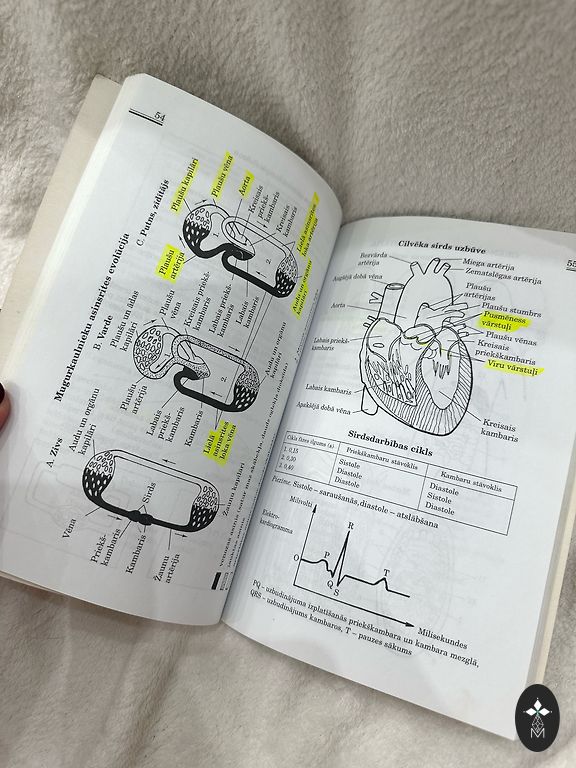 54
Mugurkaulnieku asinsrites evolūcija
A. Zivs
B. Varde
C. Putns, zīdītājs
Vēna
Priekš-
kambaris
Kambaris
Sirds
Žaunu
artērija
Žaunu kapilāri
Audu un orgānu
kapilāri
Plaušu un ādas
kapilāri
Plaušu
artērija
Plaušu
vēna
Kreisais priekš-
kambaris
Labais
priekš-
kambaris
Kambaris
Lielā
asinsrites
loka vēna
2.
Plaušu kapilāri
Plaušu vēna
Aorta
Kreisais
priekš-
kambaris
Kreisais
kambaris
Lielā asinsrites
loka artērija
Audu un orgānu
kapilāri
Plaušu
artērija
Labais priekš-
kambaris
Labais
kambaris
1.
2.
55
Cilvēka sirds uzbūve
Bezvārda
artērija
Augšējā dobā vēna
Aorta
Labais priekš-
kambaris
Labais kambaris
Apakšējā dobā vēna
Miega artērija
Zematslēgas artērija
Plaušu
artērijas
Plaušu stumbrs
Pusmēness
vārstuļi
Plaušu vēnas
Kreisais
priekškambaris
Viru vārstuļi
Kreisais
kambaris
Sirdsdarbības cikls
Cikla fāzes ilgums (s) Priekškambaru stāvoklis Kambaru stāvoklis
1. 0,15 Sistole Diastole
2. 0,30 Diastole Sistole
3. 0,40 Diastole Diastole
Piezīme. Sistole – saraušanās, diastole – atslābšana
Milivolti
Elektro-
kardiogramma
O
P
Q
R
S
T
Milisekundes
PQ – uzbudinājuma izplatīšanās priekškambara un kambara mezglā,
QRS – uzbudinājums kambaros, T – pauzes sākums
M